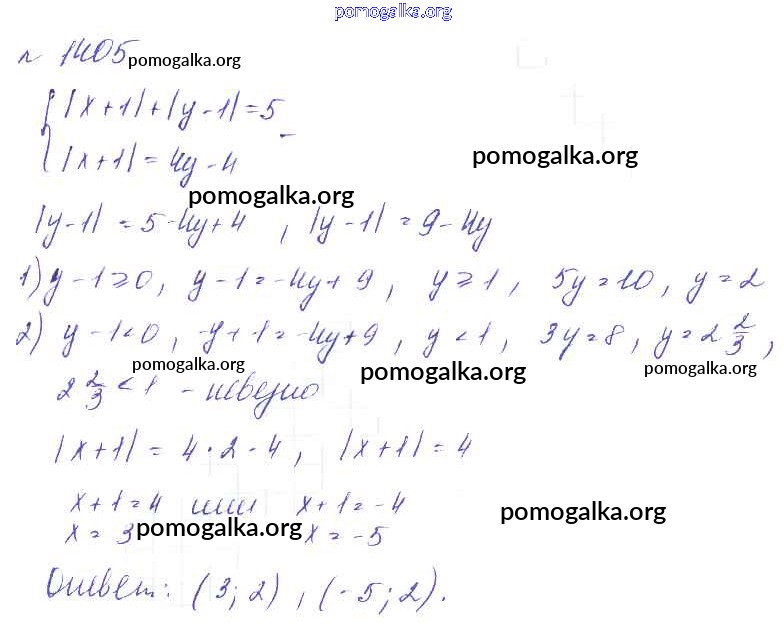 pomogalka.org
n 1405 pomogalka.org
{ |x+1|+|y-1|=5
|x+1|=4y-4
pomogalka.org
pomogalka.org
|y-1| = 5-4y+4 , |y-1| = 9-4y
1) y-1≥0, y-1=-4y+9, y≥1, 5y=10, y=2
2) y-1<0, -y+1=-4y+9, y<1, 3y=8, y=2 2/3,
pomogalka.org pomogalka.org pomogalka.org
2 2/3 <1 - неверно
|x+1| = 4·2-4, |x+1|=4
x+1=4 или x+1=-4
pomogalka.org
x=3 pomogalka.org x=-5
Ответ: (3;2), (-5;2).